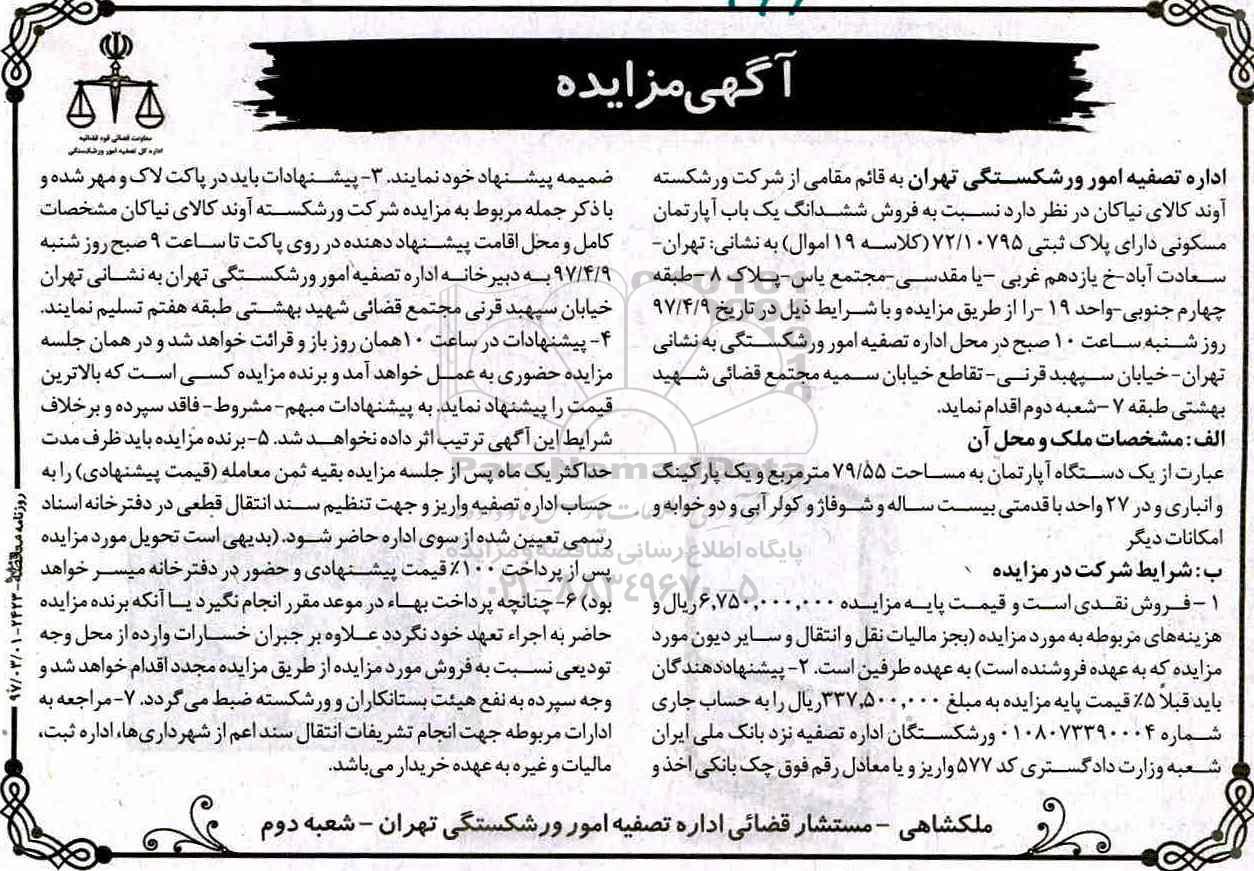 آگهی مزایده
معاونت قضائی قوه قضائیه
اداره کل تصفیه امور ورشکستگی
اداره تصفیه امور ورشکستگی تهران به قائم مقامی از شرکت ورشکسته
آوند کالای نیاکان در نظر دارد نسبت به فروش ششدانگ یک باب آپارتمان
مسکونی دارای پلاک ثبتی ۷۲/۱۰۷۹۵ (کلاسه ۱۹ اموال) به نشانی: تهران-
سعادت آباد-خ یازدهم غربی –یا مقدسی-مجتمع یاس-پلاک ۸-طبقه
چهارم جنوبی-واحد ۱۹ -را از طریق مزایده و با شرایط ذیل در تاریخ ۹۷/۴/۹
روز شنبه ساعت ۱۰ صبح در محل اداره تصفیه امور ورشکستگی به نشانی
تهران-خیابان سپهبد قرنی-تقاطع خیابان سمیه مجتمع قضائی شهید
بهشتی طبقه ۷ –شعبه دوم اقدام نماید.
الف: مشخصات ملک و محل آن
عبارت از یک دستگاه آپارتمان به مساحت ۷۹/۵۵ مترمربع و یک پارکینگ
و انباری و در ۲۷ واحد با قدمتی بیست ساله و شوفاژ و کولر آبی و دو خوابه و
امکانات دیگر
ب: شرایط شرکت در مزایده
۱ –فروش نقدی است و قیمت پایه مزایده ۶,۷۵۰,۰۰۰,۰۰۰ ریال و
هزینه‌های مربوطه به مورد مزایده (بجز مالیات نقل و انتقال و سایر دیون مورد
مزایده که به عهده فروشنده است) به عهده طرفین است. ۲- پیشنهاددهندگان
باید قبلا ۵٪ قیمت پایه مزایده به مبلغ ۳۳۷,۵۰۰,۰۰۰ریال را به حساب جاری
شماره ۰۱۰۸۰۷۳۳۹۰۰۰۴ ورشکستگان اداره تصفیه نزد بانک ملی ایران
شعبه وزارت دادگستری کد ۵۷۷ واریز و یا معادل رقم فوق چک بانکی اخذ و
ضمیمه پیشنهاد خود نمایند. ۳- پیشنهادات باید در پاکت لاک و مهر شده و
با ذکر جمله مربوط به مزایده شرکت ورشکسته آوند کالای نیاکان مشخصات
کامل و محل اقامت پیشنهاد دهنده در روی پاکت تا ساعت ۹ صبح روز شنبه
۹۷/۴/۹ به دبیرخانه اداره تصفیه امور ورشکستگی تهران به نشانی تهران
خیابان سپهبد قرنی مجتمع قضائی شهید بهشتی طبقه هفتم تسلیم نمایند.
۴- پیشنهادات در ساعت ۱۰ همان روز باز و قرائت خواهد شد و در همان جلسه
مزایده حضوری به عمل خواهد آمد و برنده مزایده کسی است که بالاترین
قیمت را پیشنهاد نماید. به پیشنهادات مبهم- مشروط- فاقد سپرده و برخلاف
شرایط این آگهی ترتیب اثر داده نخواهد شد. ۵-برنده مزایده باید ظرف مدت
حداکثر یک ماه پس از جلسه مزایده بقیه ثمن معامله (قیمت پیشنهادی) را به
حساب اداره تصفیه واریز و جهت تنظیم سند انتقال قطعی در دفترخانه اسناد
رسمی تعیین شده از سوی اداره حاضر شود. (بدیهی است تحویل مورد مزایده
پس از پرداخت ۱۰۰٪ قیمت پیشنهادی و حضور در دفترخانه میسر خواهد
بود) ۶- چنانچه پرداخت بهاء در موعد مقرر انجام نگیرد یا آنکه برنده مزایده
حاضر به اجراء تعهد خود نگردد علاوه بر جبران خسارات وارده از محل وجه
تودیعی نسبت به فروش مورد مزایده از طریق مزایده مجدد اقدام خواهد شد و
وجه سپرده به نفع هیئت بستانکاران و ورشکسته ضبط می گردد. ۷-مراجعه به
ادارات مربوطه جهت انجام تشریفات انتقال سند اعم از شهرداری‌ها، اداره ثبت،
مالیات و غیره به عهده خریدار می‌باشد.
ملکشاهی - مستشار قضائی اداره تصفیه امور ورشکستگی تهران - شعبه دوم
ParsNamadData
پایگاه اطلاع رسانی مناقصه و مزایده
۰۲۱-۸۸۳۴۹۶۷۰-۵